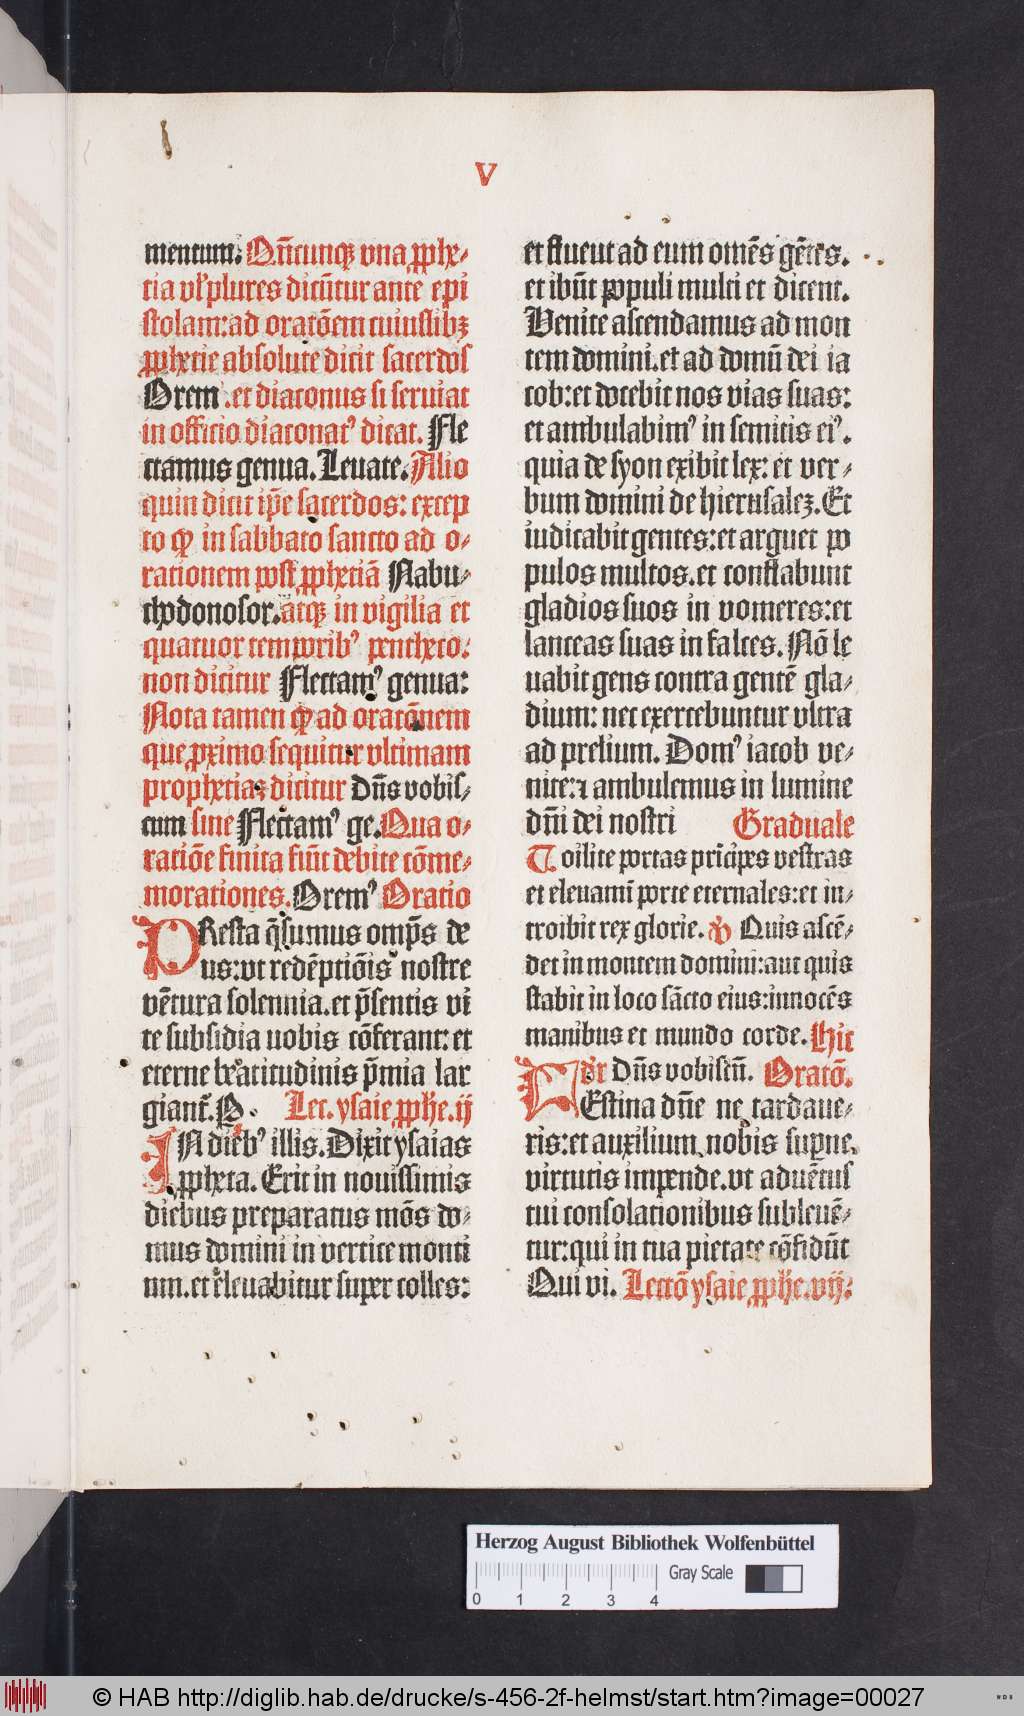 V
mentum. Qn̄cunqꝫ vna ꝓphe⸗
tia vl' plures dicūtur ante epi
stolam: ad oratōem cuiuslibꝫ
ꝓphetie absolute dicit sacerdos
Orem .et diaconus si seruiat
in officio diaconatꝰ dicat. Fle
ctamus genua. Leuate. Alio
quin dicit ip̄e sacerdos: excep
to ꝙ in sabbato sancto ad o⸗
rationem post ꝓphetiā Nabu⸗
chodonosor. atqꝫ in vigilia et
quatuor temporibꝰ pentheco.
non dicitur Flectamꝰ genua:
Nota tamen ꝙ ad oratōnem
que ꝓximo sequitur vltimam
prophetiaꝫ dicitur Dn̄s vobis⸗
cum sine Flectamꝰ ge. Qua o⸗
ratiōe finita fiūt debite cōme⸗
morationes. Oremꝰ Oratio
PResta q̄sumus omp̄s de
us: vt redēptiōis nostre
vētura solennia. et p̄sentis vi
te subsidia nobis cōferant: et
eterne beatitudinis p̄mia lar
giant᷑. P. Lec. ysaie ꝓphe. ij
IN diebꝰ illis. Dixit ysaias
ꝓpheta. Erit in nouissimis
diebus preparatus mōs do⸗
mus domini in vertice monti
um. et eleuabitur super colles:
et fluent ad eum omēs gētes.
et ibūt populi multi et dicent.
Venite ascendamus ad mon
tem domini. et ad domū dei ia
cob: et docebit nos vias suas:
et ambulabimꝰ in semitis eiꝰ.
quia de syon exibit lex: et ver⸗
bum domini de hierusaleꝫ. Et
iudicabit gentes: et arguet po
pulos multos. et conflabunt
gladios suos in vomeres: et
lanceas suas in falces. Nō le
uabit gens contra gentē gla⸗
dium: nec exercebuntur vltra
ad prelium. Domꝰ iacob ve⸗
nite: ⁊ ambulemus in lumine
dn̄i dei nostri Graduale
Tollite portas prīcipes vestras
et eleuamī porte eternales: et in⸗
troibit rex glorie. ℣ Quis ascē⸗
det in montem domini: aut quis
stabit in loco sācto eius: innocēs
manibus et mundo corde. Hic
dr̄ Dn̄s vobiscū. Oratō.
FEstina dn̄e ne tardaue⸗
ris: et auxilium nobis superne
virtutis impende. vt aduētus
tui consolationibus subleuē⸗
tur: qui in tua pietate cōfidūt
Qui vi. Lectō ysaie ꝓphe. vij.
Herzog August Bibliothek Wolfenbüttel
Gray Scale
0 1 2 3 4
© HAB http://diglib.hab.de/drucke/s-456-2f-helmst/start.htm?image=00027